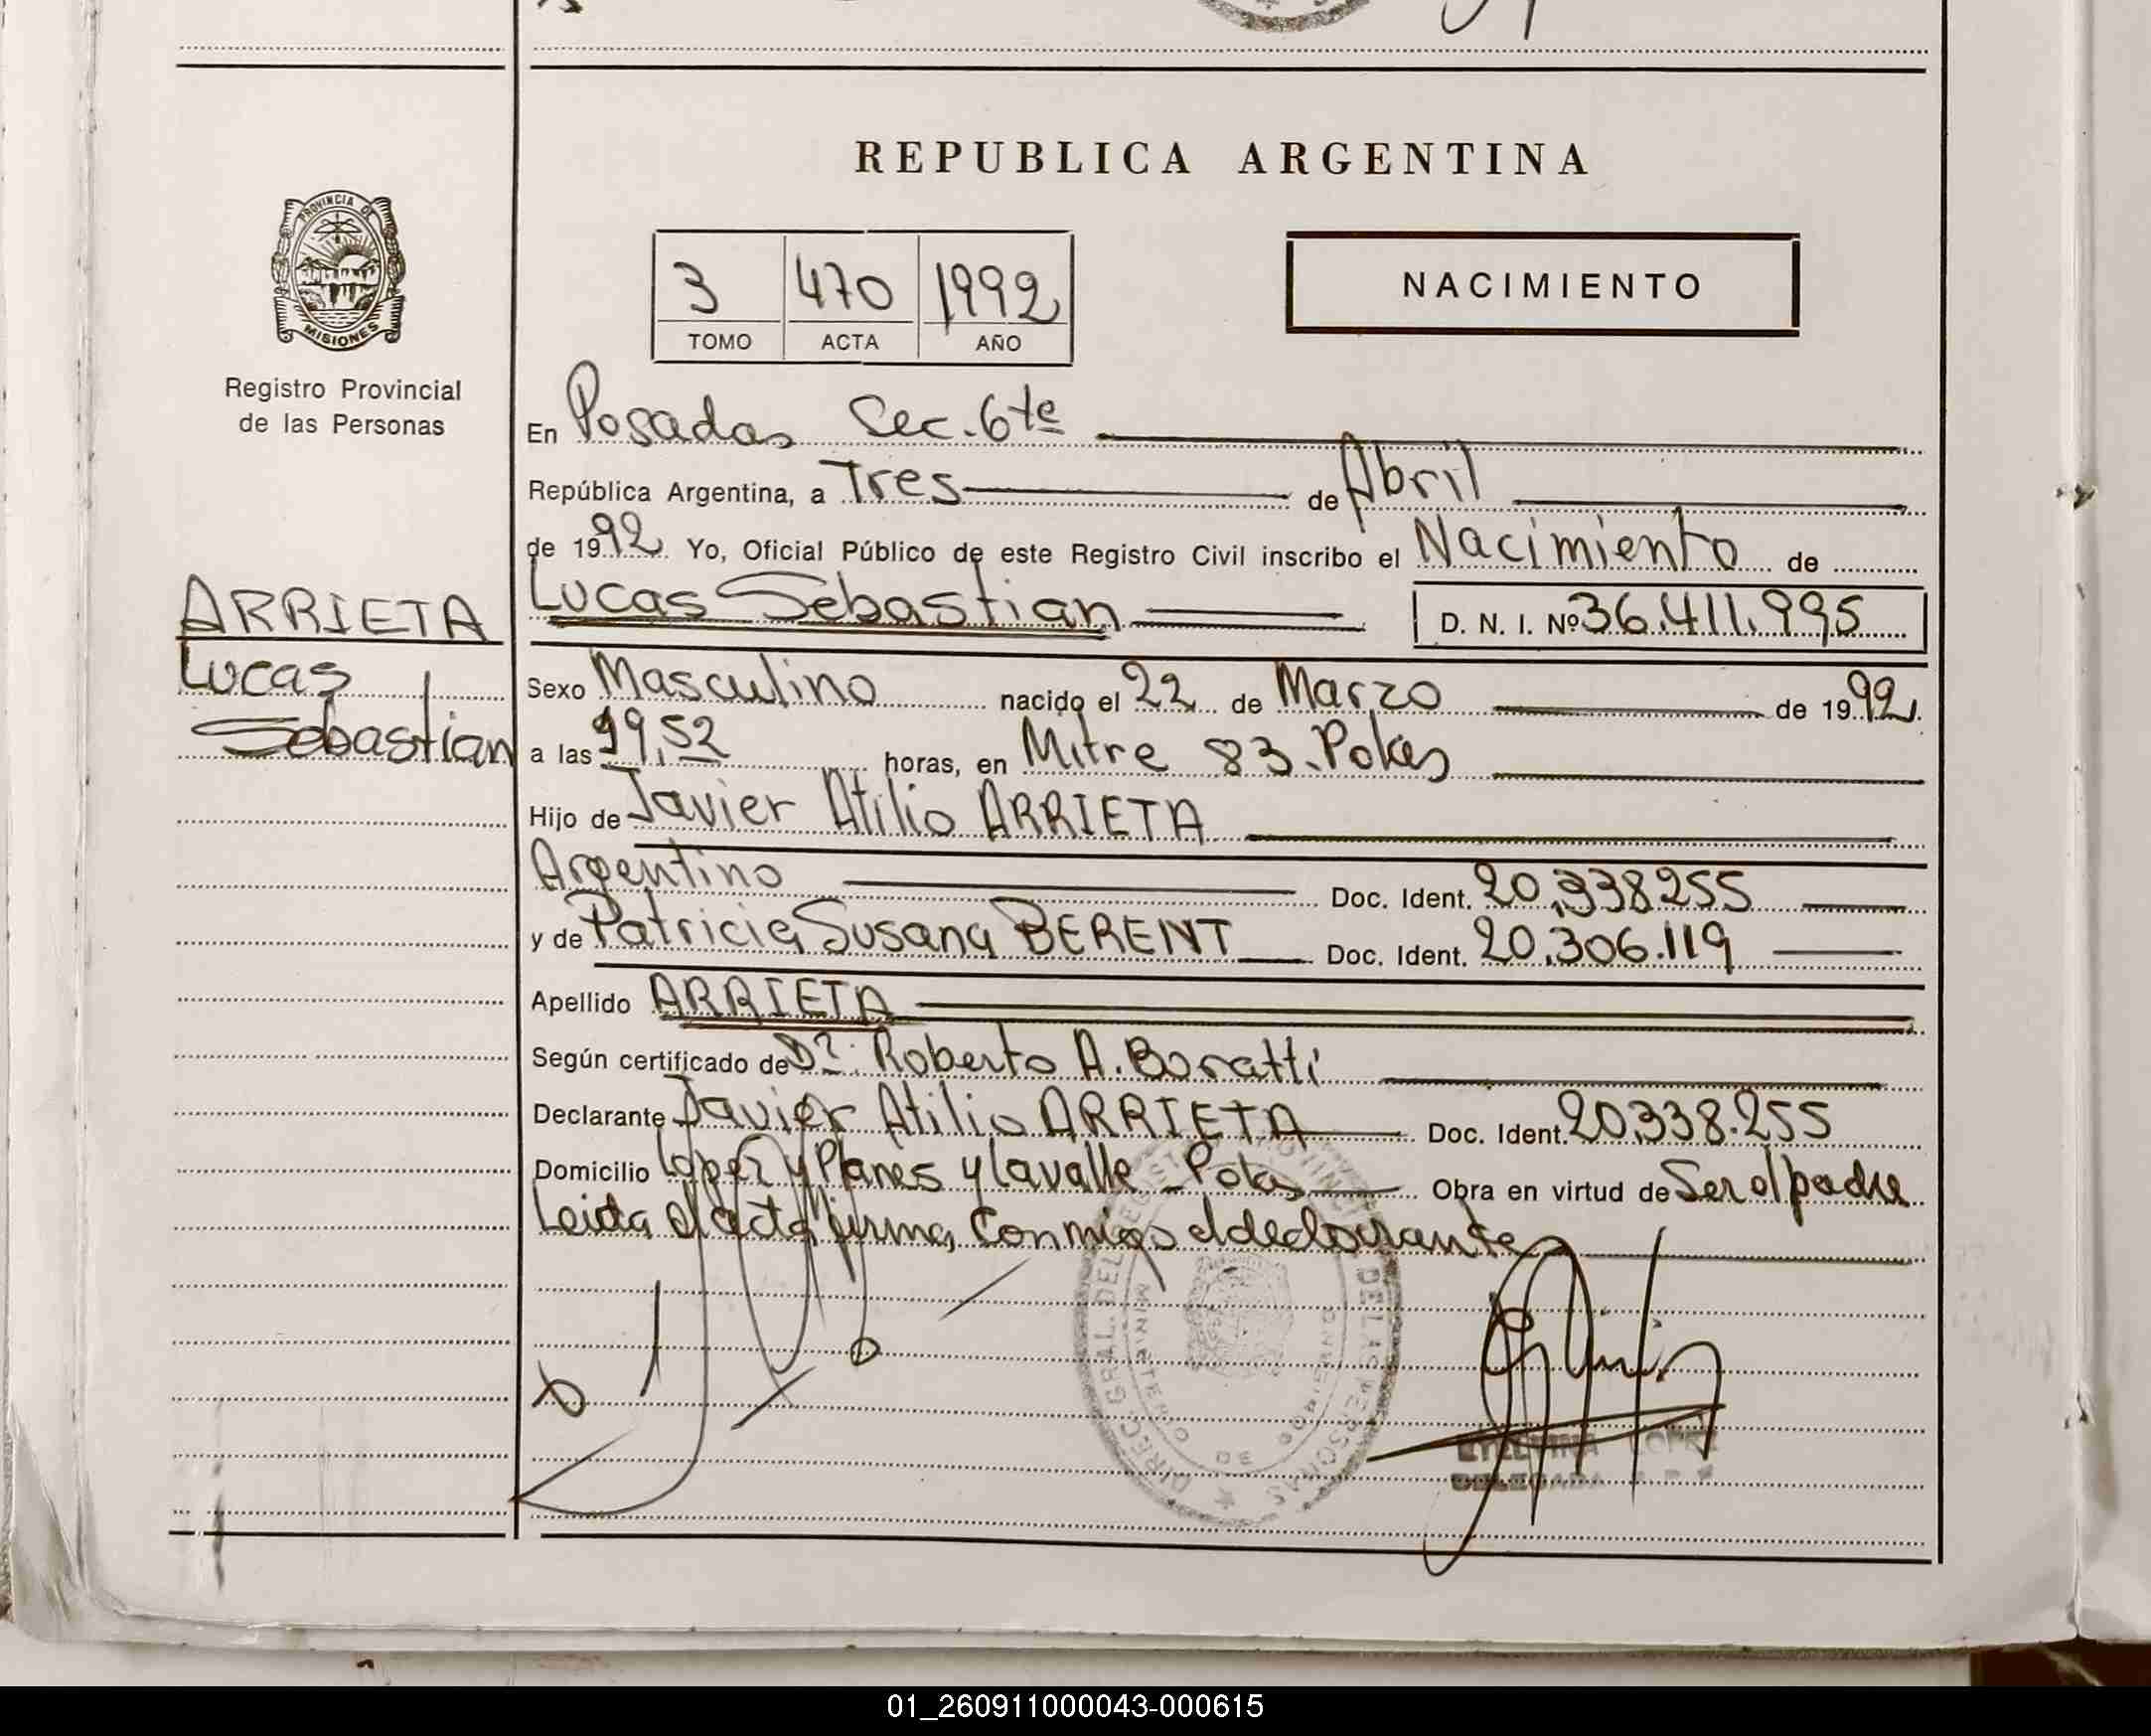 REPUBLICA ARGENTINA
PROVINCIA DE
MISIONES
Registro Provincial
de las Personas
3 470 1992
TOMO ACTA AÑO
NACIMIENTO
En Posadas Sec. 6ta
República Argentina, a Tres de Abril
de 1992 Yo, Oficial Público de este Registro Civil inscribo el Nacimiento de
ARRIETA
Lucas
Sebastian
Lucas Sebastian D. N. I. Nº 36.411.995
Sexo Masculino nacido el 22 de Marzo de 1992
a las 19,52 horas, en Mitre 83.
Hijo de Javier Atilio ARRIETA
Argentino Doc. Ident. 20.338255
y de Patricia Susana BERENT Doc. Ident. 20.306.119
Apellido ARRIETA
Según certificado de Dr. Roberto A. Boratti
Declarante Javier Atilio ARRIETA Doc. Ident. 20.338.255
Domicilio Lopez y Planes y Lavalle Obra en virtud de Ser el padre
Leida el acta firma conmigo el declarante
DIREC. GRAL. DEL REGIST PROVINCIAL DE LAS PERSONAS
MINISTERIO DE GOBIERNO
LOPEZ
DELEGADA
01_260911000043-000615